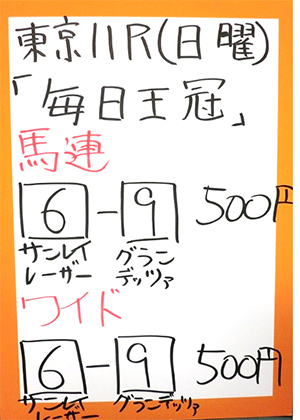 東京11R(日曜)
「毎日王冠」
馬連
6-9 500円
サンレイ グラン
レーザー デッツァ
ワイド
6-9 500円
サンレイ グランデッツァ
レーザー